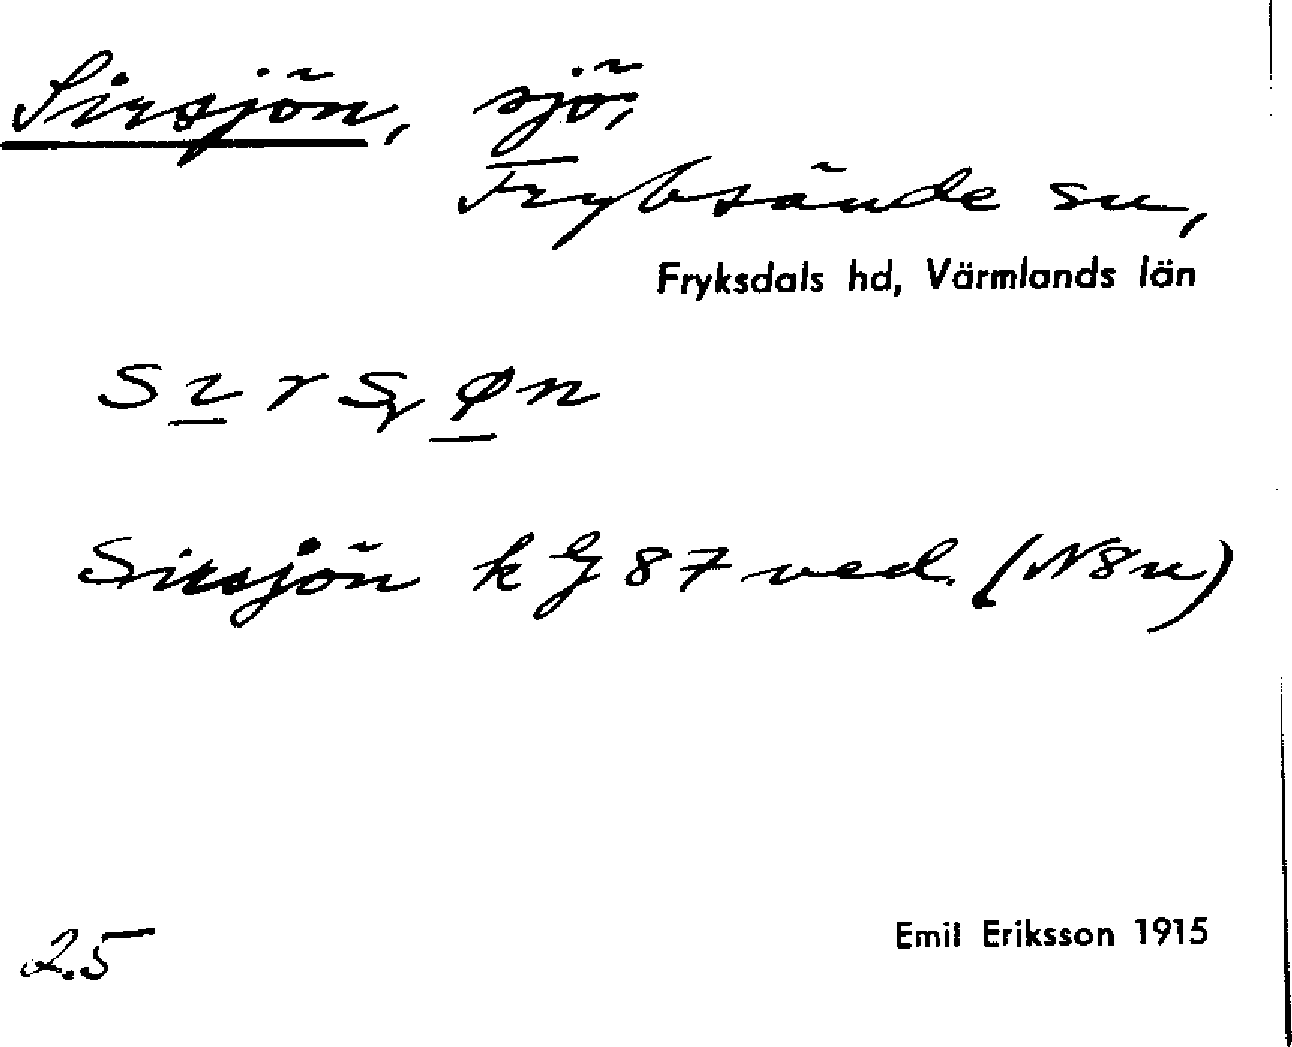 Sirsjön, sjö,
Fryksände sn,
Fryksdals hd, Värmlands län
Sirsjön k G 87 ved. (N8u)
25
Emil Eriksson 1915